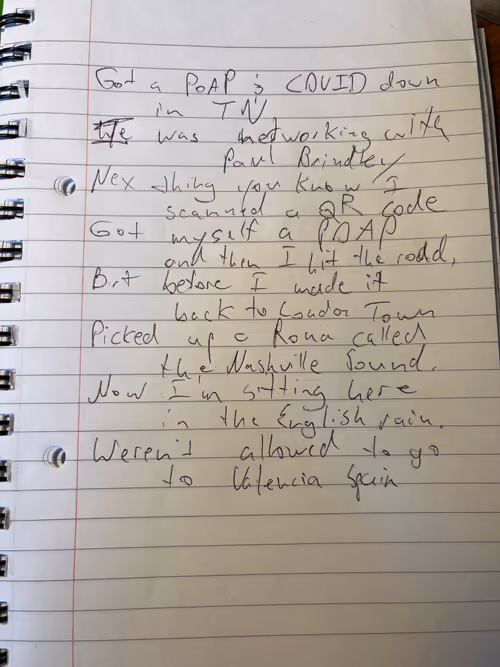 Got a POAP & COVID down
in TN
We was networking with
Paul Brindley
Nex thing you know I
scanned a QR code
Got myself a POAP
and then I hit the road,
But before I made it
back to London Town
Picked up a Rona called
the Nashville Sound.
Now I'm sitting here
in the English rain.
Weren't allowed to go
to Valencia Spain